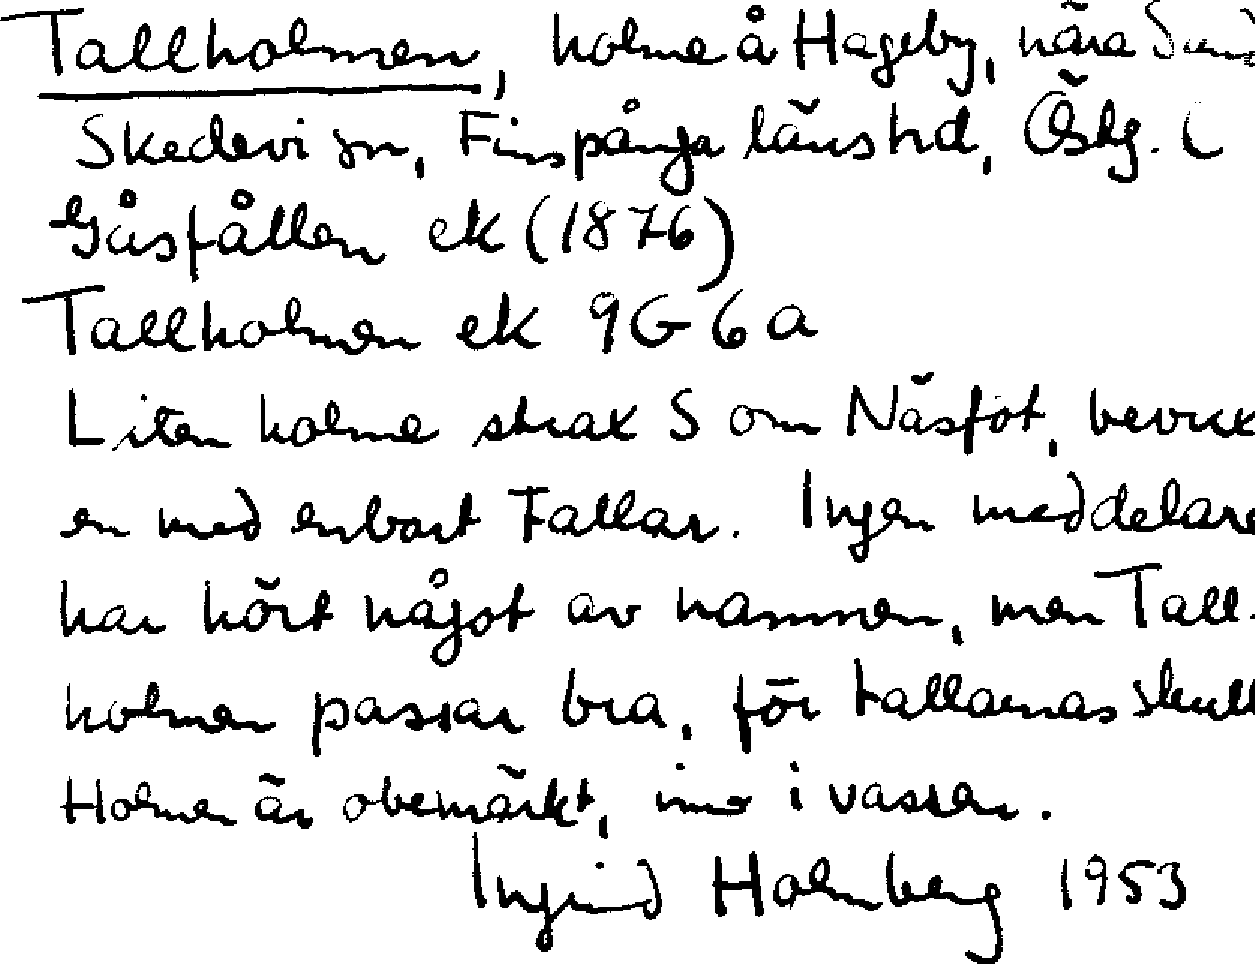 Tallholmen, holme å Hageby, nära Sund
Skedevi sn, Finspånga länshd, Östg. l
Gåsfållen ek (1876)
Tallholmen ek 9G 6a
Liten holme strax S om Näsfot, bevux
en med enbart tallar. Ingen meddelare
har hört något av namnen, men Tall-
holmen passar bra, för tallarnas skull
Holmen är obemärkt, inne i vassen.
Ingrid Holmberg 1953